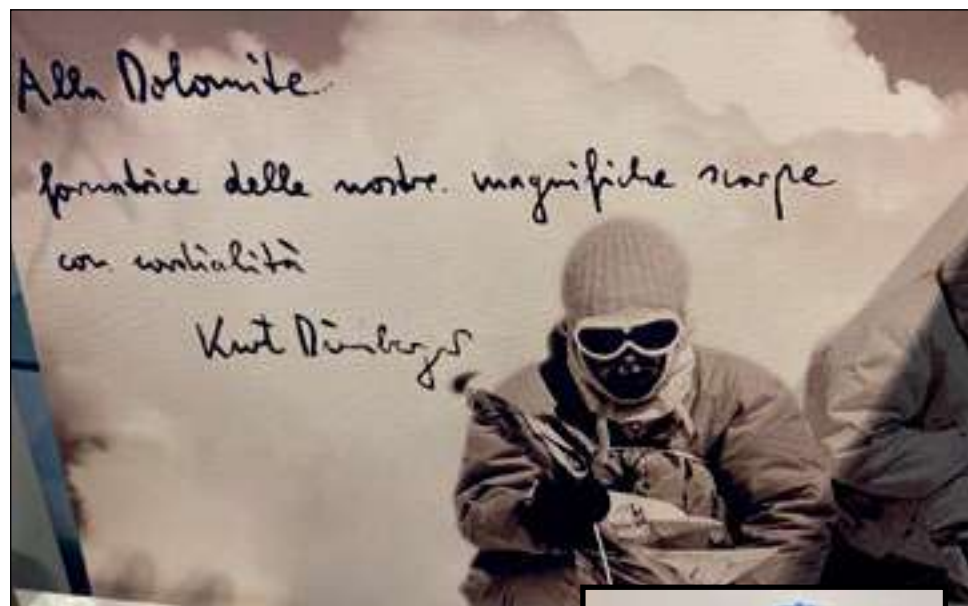 Alla Dolomite
fornitrice delle nostre magnifiche scarpe
con cordialità
Kurt Diemberger